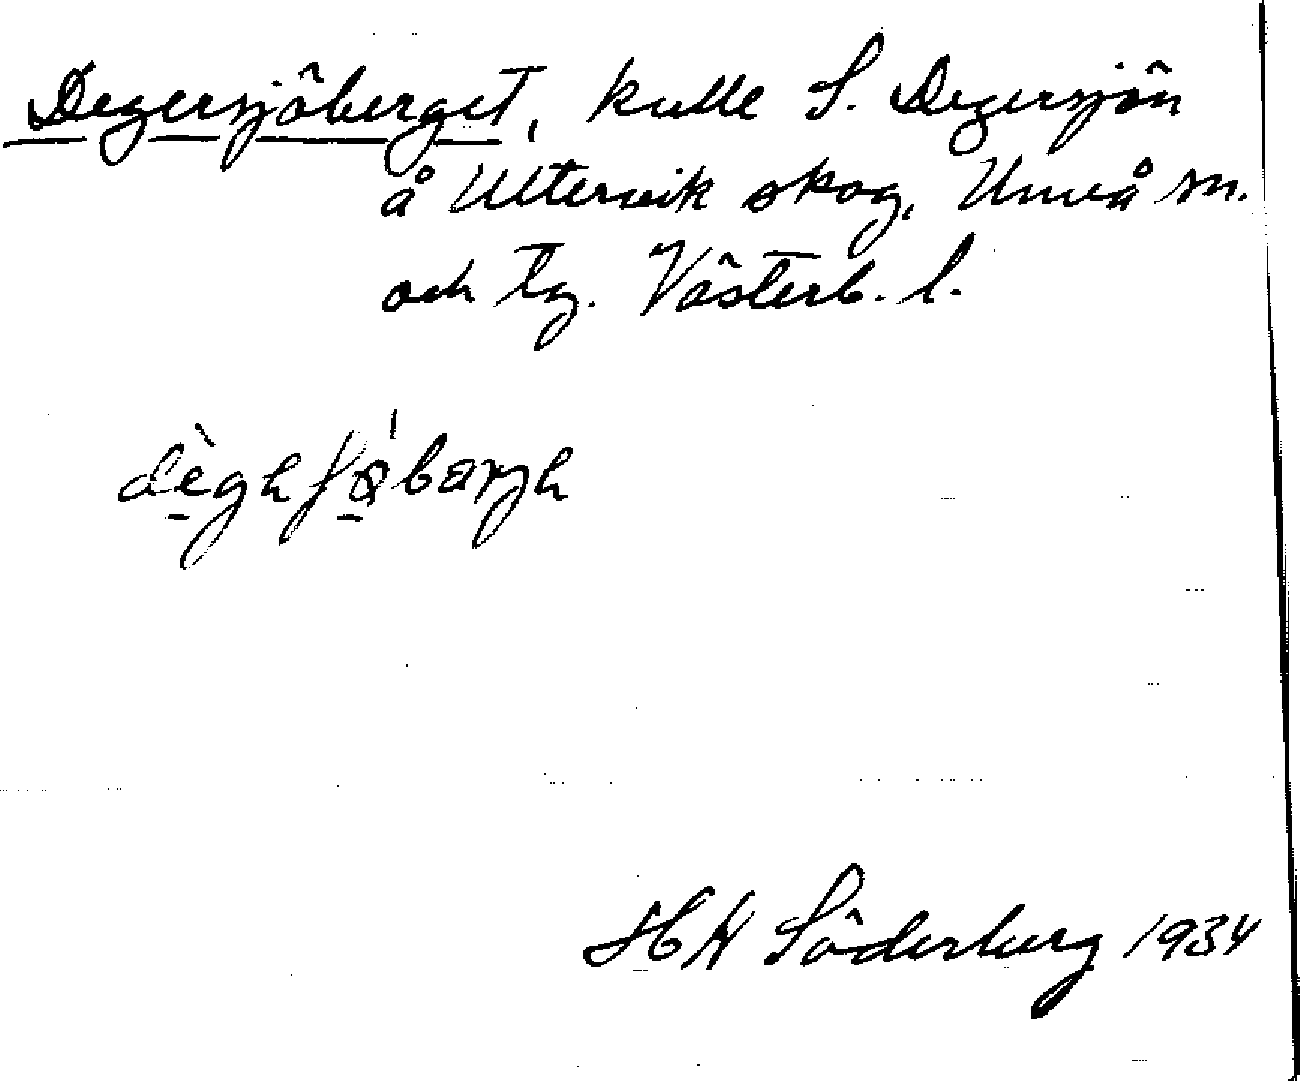 Degersjöberget, kulle S. Degersjön
å Ultervik skog, Umeå sn.
och tg. Västerb. l.
H N Söderberg 1934